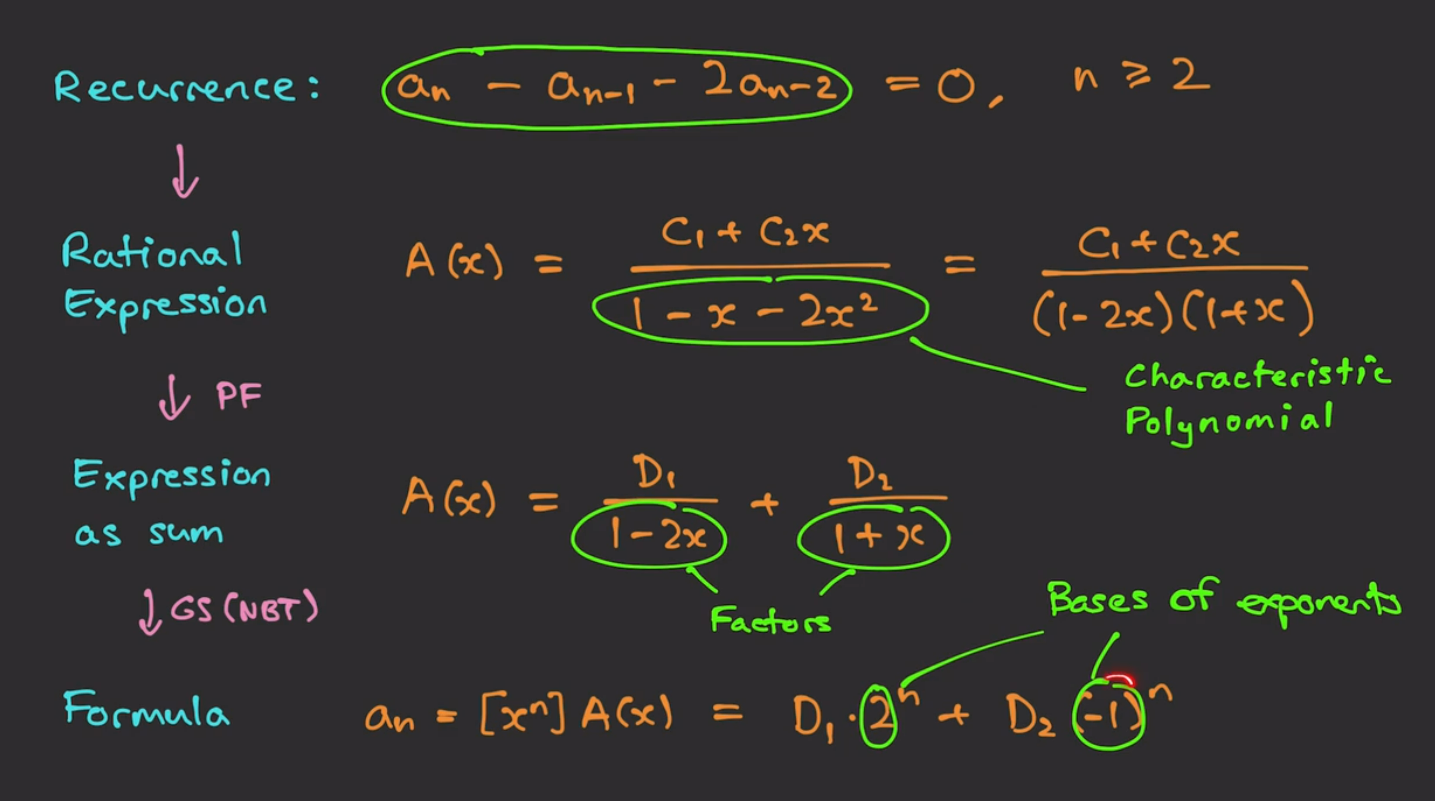 Recurrence: aₙ − aₙ₋₁ − 2aₙ₋₂ = 0, n ≥ 2
↓
Rational Expression A(x) = (C₁ + C₂x)/(1 − x − 2x²) = (C₁ + C₂x)/((1 − 2x)(1 + x))
Characteristic
Polynomial
↓ PF
Expression as sum A(x) = D₁/(1 − 2x) + D₂/(1 + x)
Factors
↓ GS (NBT)
Bases of exponents
Formula aₙ = [xⁿ] A(x) = D₁ · 2ⁿ + D₂ (−1)ⁿ